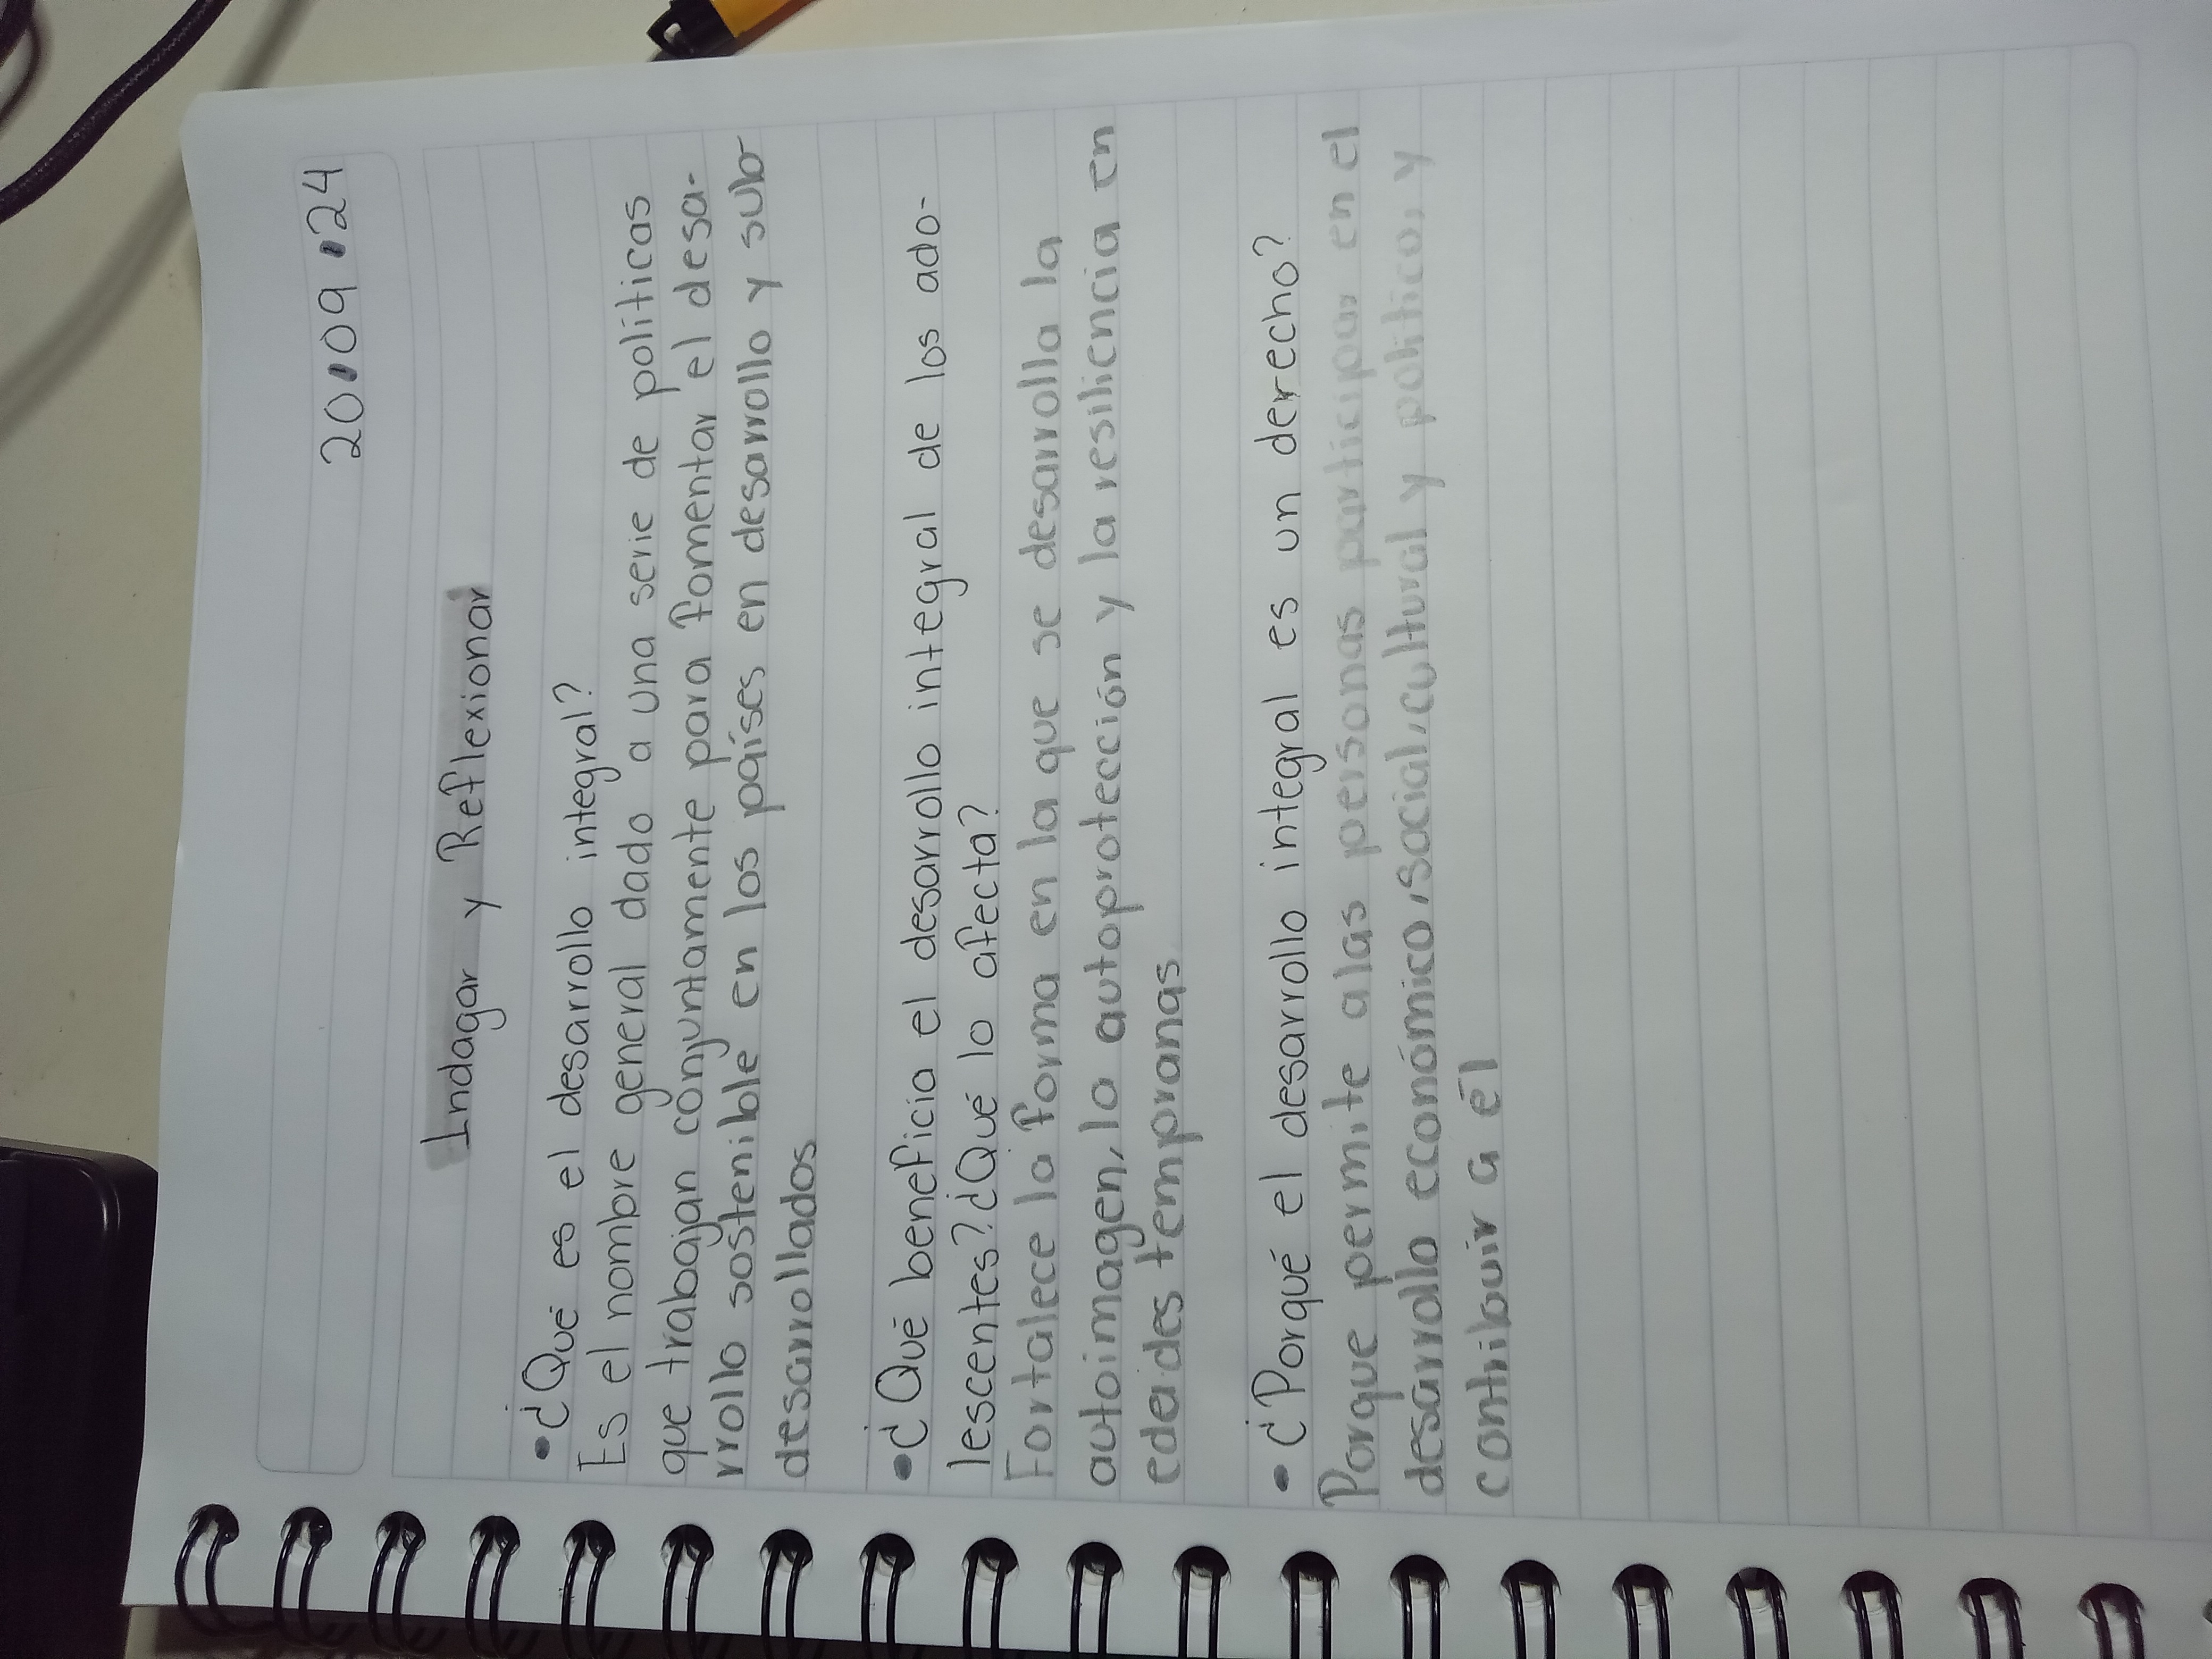 20•09•24
Indagar y Reflexionar
• ¿Qué es el desarrollo integral?
Es el nombre general dado a una serie de políticas
que trabajan conjuntamente para fomentar el desa-
rrollo sostenible en los países en desarrollo y sub-
desarrollados
• ¿Qué beneficia el desarrollo integral de los ado-
lescentes? ¿Qué lo afecta?
Fortalece la forma en la que se desarrolla la
autoimagen, la autoprotección y la resiliencia en
edades tempranas
• ¿Porqué el desarrollo integral es un derecho?
Porque permite alas personas participar en el
desarrollo económico, social, cultural y político, y
contribuir a él